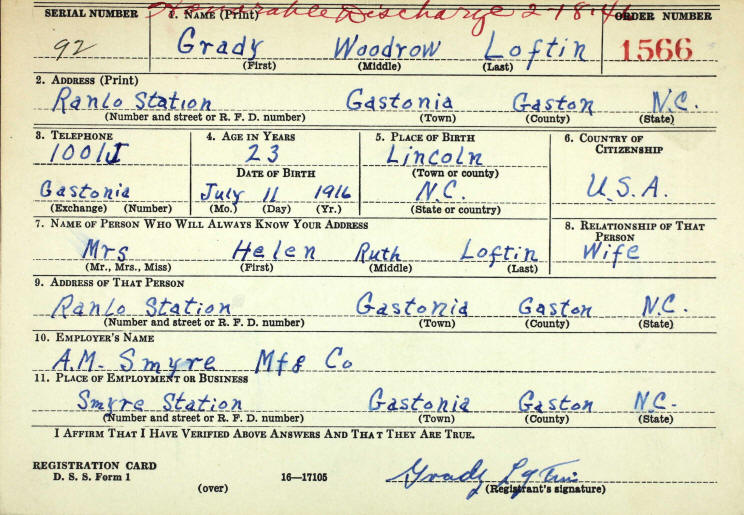 Honorable Discharge 2-18-46
SERIAL NUMBER 1. NAME (Print) ORDER NUMBER
92 Grady Woodrow Loftin 1566
(First) (Middle) (Last)
2. ADDRESS (Print)
Ranlo Station Gastonia Gaston N.C.
(Number and street or R. F. D. number) (Town) (County) (State)
3. TELEPHONE 4. AGE IN YEARS 5. PLACE OF BIRTH 6. COUNTRY OF
CITIZENSHIP
1001J 23 Lincoln
(Town or county)
DATE OF BIRTH
Gastonia July 11 1916 N.C. U.S.A.
(Exchange) (Number) (Mo.) (Day) (Yr.) (State or country)
7. NAME OF PERSON WHO WILL ALWAYS KNOW YOUR ADDRESS 8. RELATIONSHIP OF THAT
PERSON
Mrs Helen Ruth Loftin Wife
(Mr., Mrs., Miss) (First) (Middle) (Last)
9. ADDRESS OF THAT PERSON
Ranlo Station Gastonia Gaston N.C.
(Number and street or R. F. D. number) (Town) (County) (State)
10. EMPLOYER'S NAME
A.M. Smyre Mfg Co
11. PLACE OF EMPLOYMENT OR BUSINESS
Smyre Station Gastonia Gaston N.C.
(Number and street or R. F. D. number) (Town) (County) (State)
I AFFIRM THAT I HAVE VERIFIED ABOVE ANSWERS AND THAT THEY ARE TRUE.
REGISTRATION CARD
D. S. S. Form 1 16—17105 Grady Loftin
(over) (Registrant's signature)